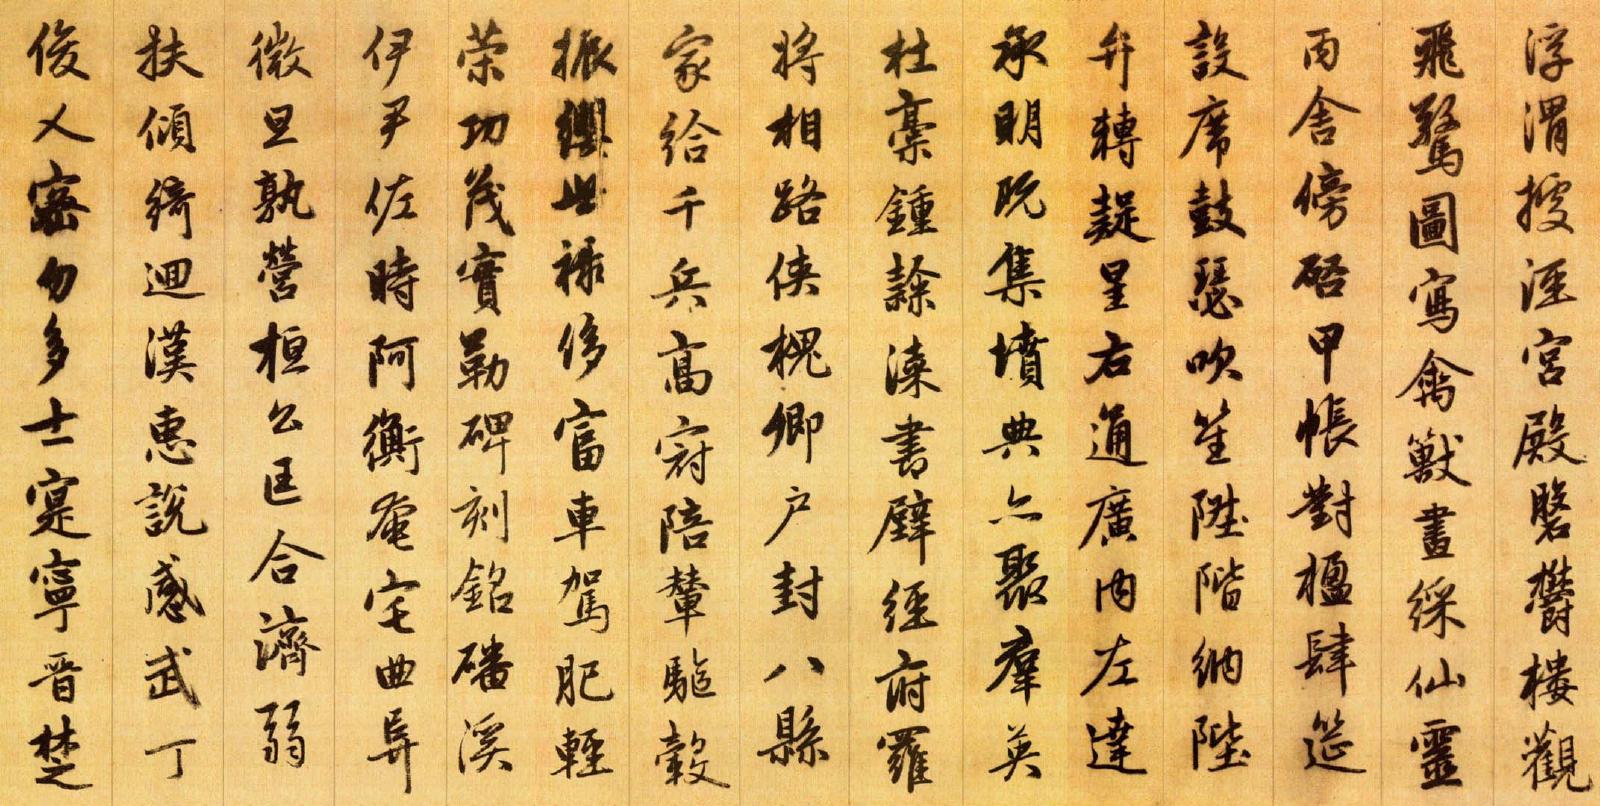 浮渭據涇宮殿磐欝樓觀
飛驚圖寫禽獸畫綵仙靈
丙舍傍啓甲帳對楹肆筵
設席鼓瑟吹笙陞階納陛
弁轉疑星右通廣内左達
承明既集墳典亦聚羣英
杜稾鍾隸漆書壁經府羅
將相路俠槐卿户封八縣
家給千兵高冠陪輦驅轂
振纓世祿侈富車駕肥輕
策功茂實勒碑刻銘磻溪
伊尹佐時阿衡奄宅曲阜
微旦孰營桓公匡合濟弱
扶傾綺迴漢惠説感武丁
俊乂密勿多士寔寧晉楚